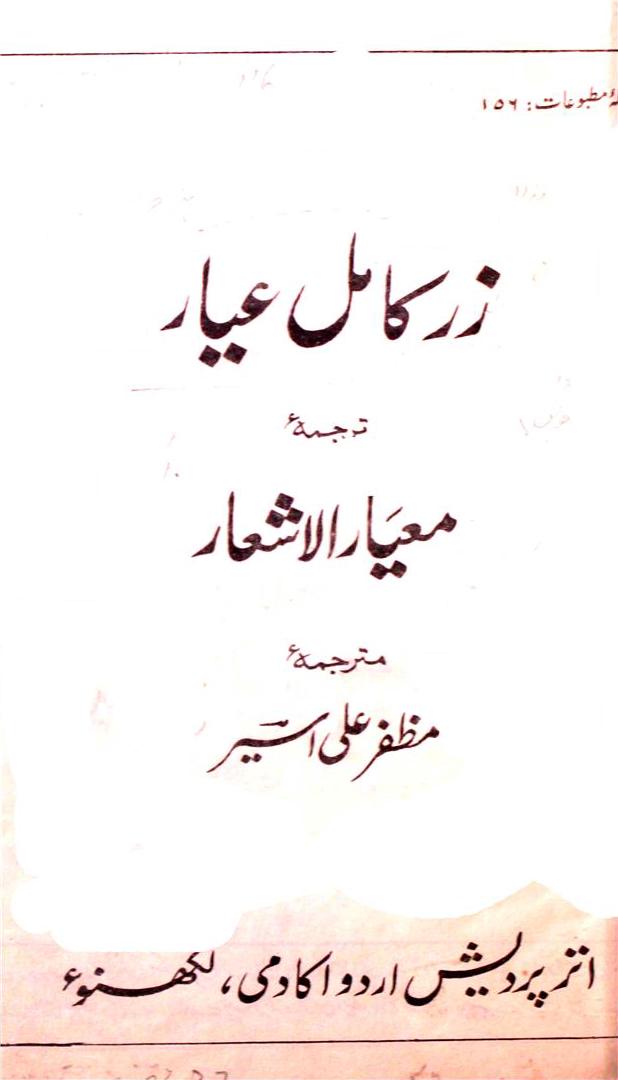 مطبوعات: ۱۵۶
زر کامل عیار
ترجمۂ
معیَار الاشعار
مترجمۂ
مظفر علی اسیر
اتر پردیش اردو اکادمی، لکھنوٴ